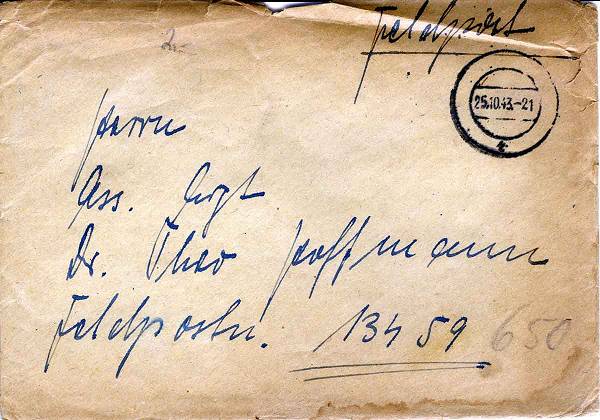 Feldpost
25.10.43.-21
Herrn
Ass. Arzt
Dr. Theo Hoffmann
Feldpostnr. 13459
650